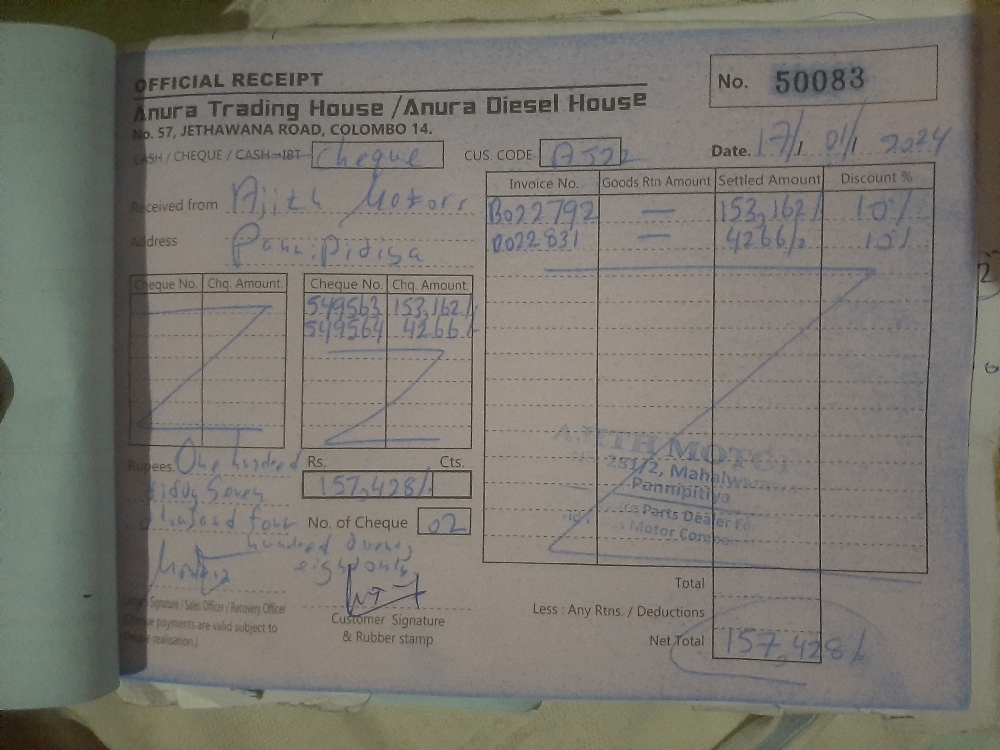 OFFICIAL RECEIPT
No. 50083
Anura Trading House / Anura Diesel House
No. 57, JETHAWANA ROAD, COLOMBO 14.
CASH / CHEQUE / CASH-IBT Cheque CUS. CODE AJ22 Date. 17/ 01/ 2024
Received from Ajith Motors
Address
Invoice No. Goods Rtn Amount Settled Amount Discount %
B022792 — 153,162/- 10%
B022831 — 4266/- 10%
Cheque No. Chq. Amount. Cheque No. Chq. Amount.
549563 153,162/-
549564 4266/-
Rupees. One hundred
Rs. Cts.
157,428/-
Seven
four
No. of Cheque 02
hundred
eight only
AJITH MOTORS
281/2,
Pannipitiya
Parts Dealer For
Motor
Signature / Sales Officer / Recovery Officer
(Cheque payments are valid subject to
cheque realisation.)
Customer Signature
& Rubber stamp
Total
Less : Any Rtns. / Deductions
Net Total 157,428/-